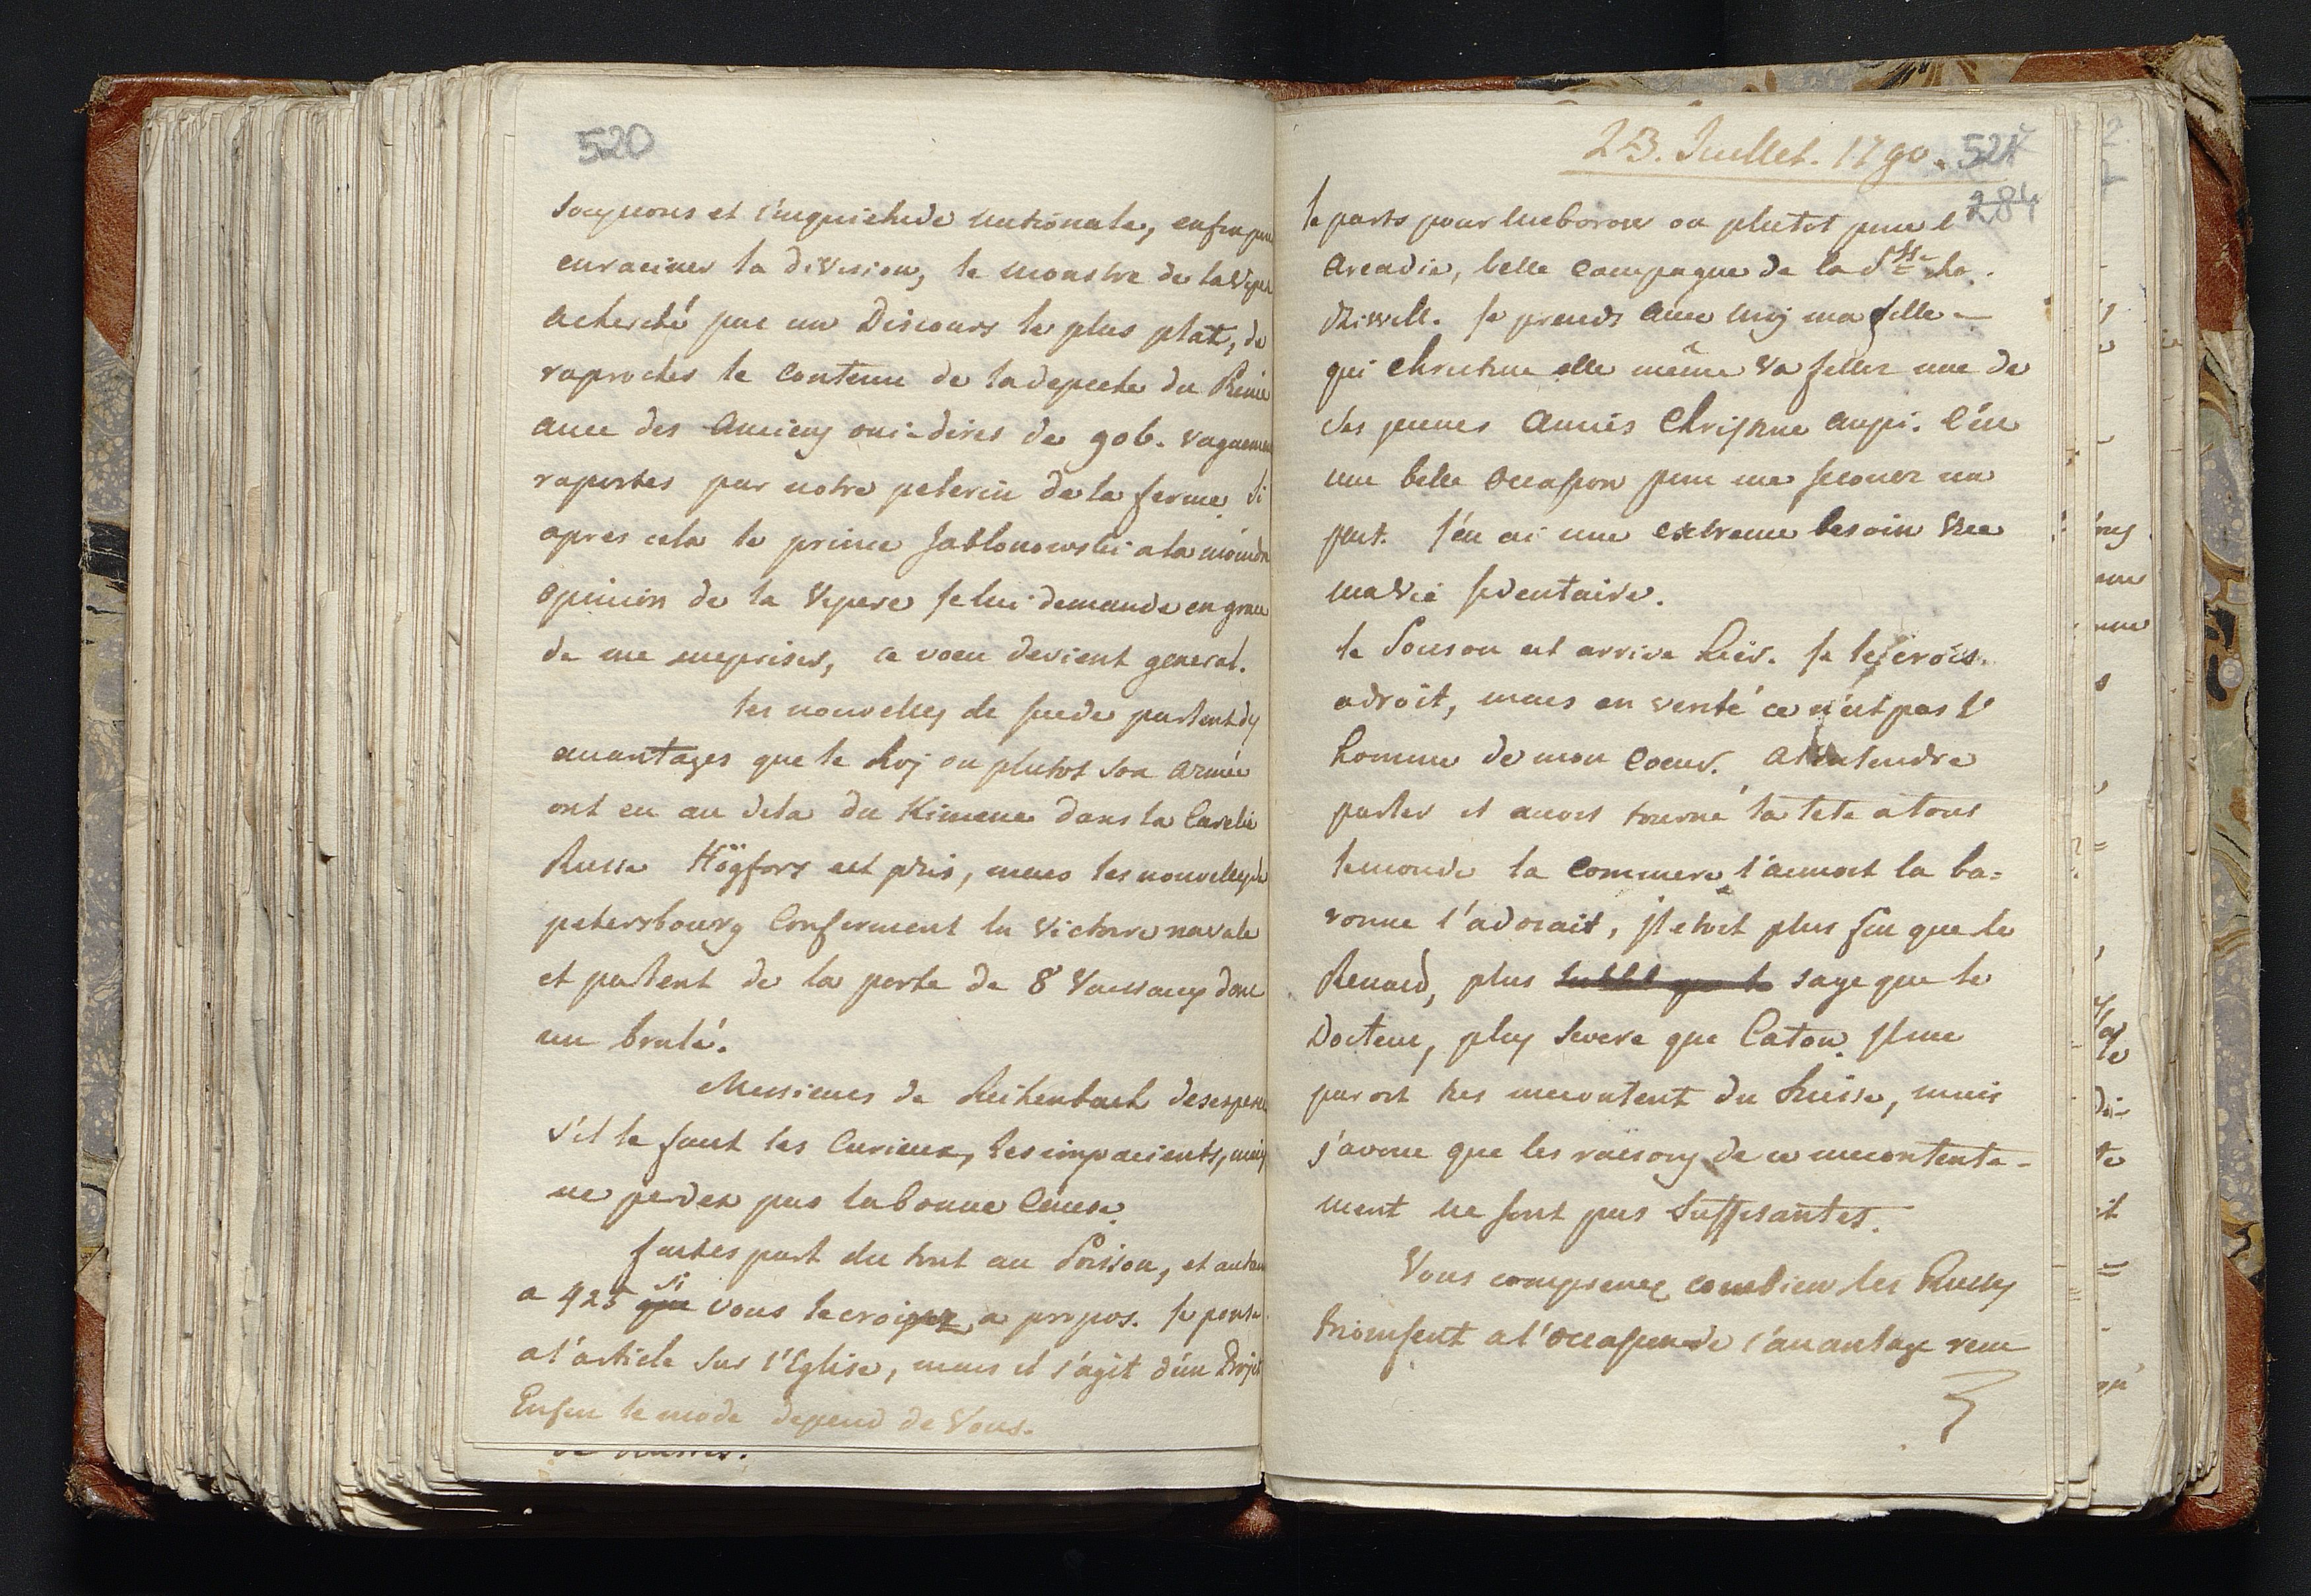 520
soupçons et l'inquietude nationale, enfin pour
enraciner la division, le monstre de la Vipere
a cherché par un Discours le plus plat, de
raprocher le contenu de la depeche du Prince
avec des Anciens oui-dires de 906. vaguement
raportes par notre pelerin de la ferme. Si
apres cela le prince Jablonowski a la moindre
opinion de la Vipere je lui demande en grace
de me mepriser, ce voeu devient general.
les nouvelles de suede parlent des
avantages que le Roj ou plutot son armée
ont eu au dela du Kimene dans la Carelie
Russe Högfors est pris, mais les nouvelles de
petersbourg Confirment la Victoire navale
et parlent de la perte de 8 Vaisseaux dont
un brulé.
Messieurs de Reichenbach desesperés
s'il le faut les Curieux, les impacients, mais
ne perdez pas la bonne Cause.
faites part du tout au Poisson, et autant
a 425 que si vous le croiez a propos. Je pense
a l'article sur l'Eglise, mais il s'agit d'un Projet
Enfin le mode depend de Vous.
23. Juillet. 1790. 521
284
Je parts pour Nieborow ou plutot pour l'
Arcadie, belle campagne de la Psse Ra.
dziwill. Je prends avec moj ma fille
qui Christine elle même va feter une de
ses jeunes Amies Christine aussi. C'en
une belle occasion pour me secouer un
peut. J'en ai une extreme besoin vue
ma vie sedentaire.
le Poisson est arrive hier. Je le crois
adroit, mais en verité ce n'est pas l'
homme de mon coeur. A l'entendre
parler il avoit tourné la tete a tous
le monde la Commere l'aimoit la ba=
ronne l'adorait, il etoit plus fin que le
Renard, plus subtil que le sage que le
Docteur, plus severe que Caton. Il me
paroit tres mecontent du Suisse, mais
j'avoue que les raisons de ce mecontente-
ment ne sont pas suffisantes.
Vous comprenez combien les Russes
triomfent a l'occasion de l'avantage rem